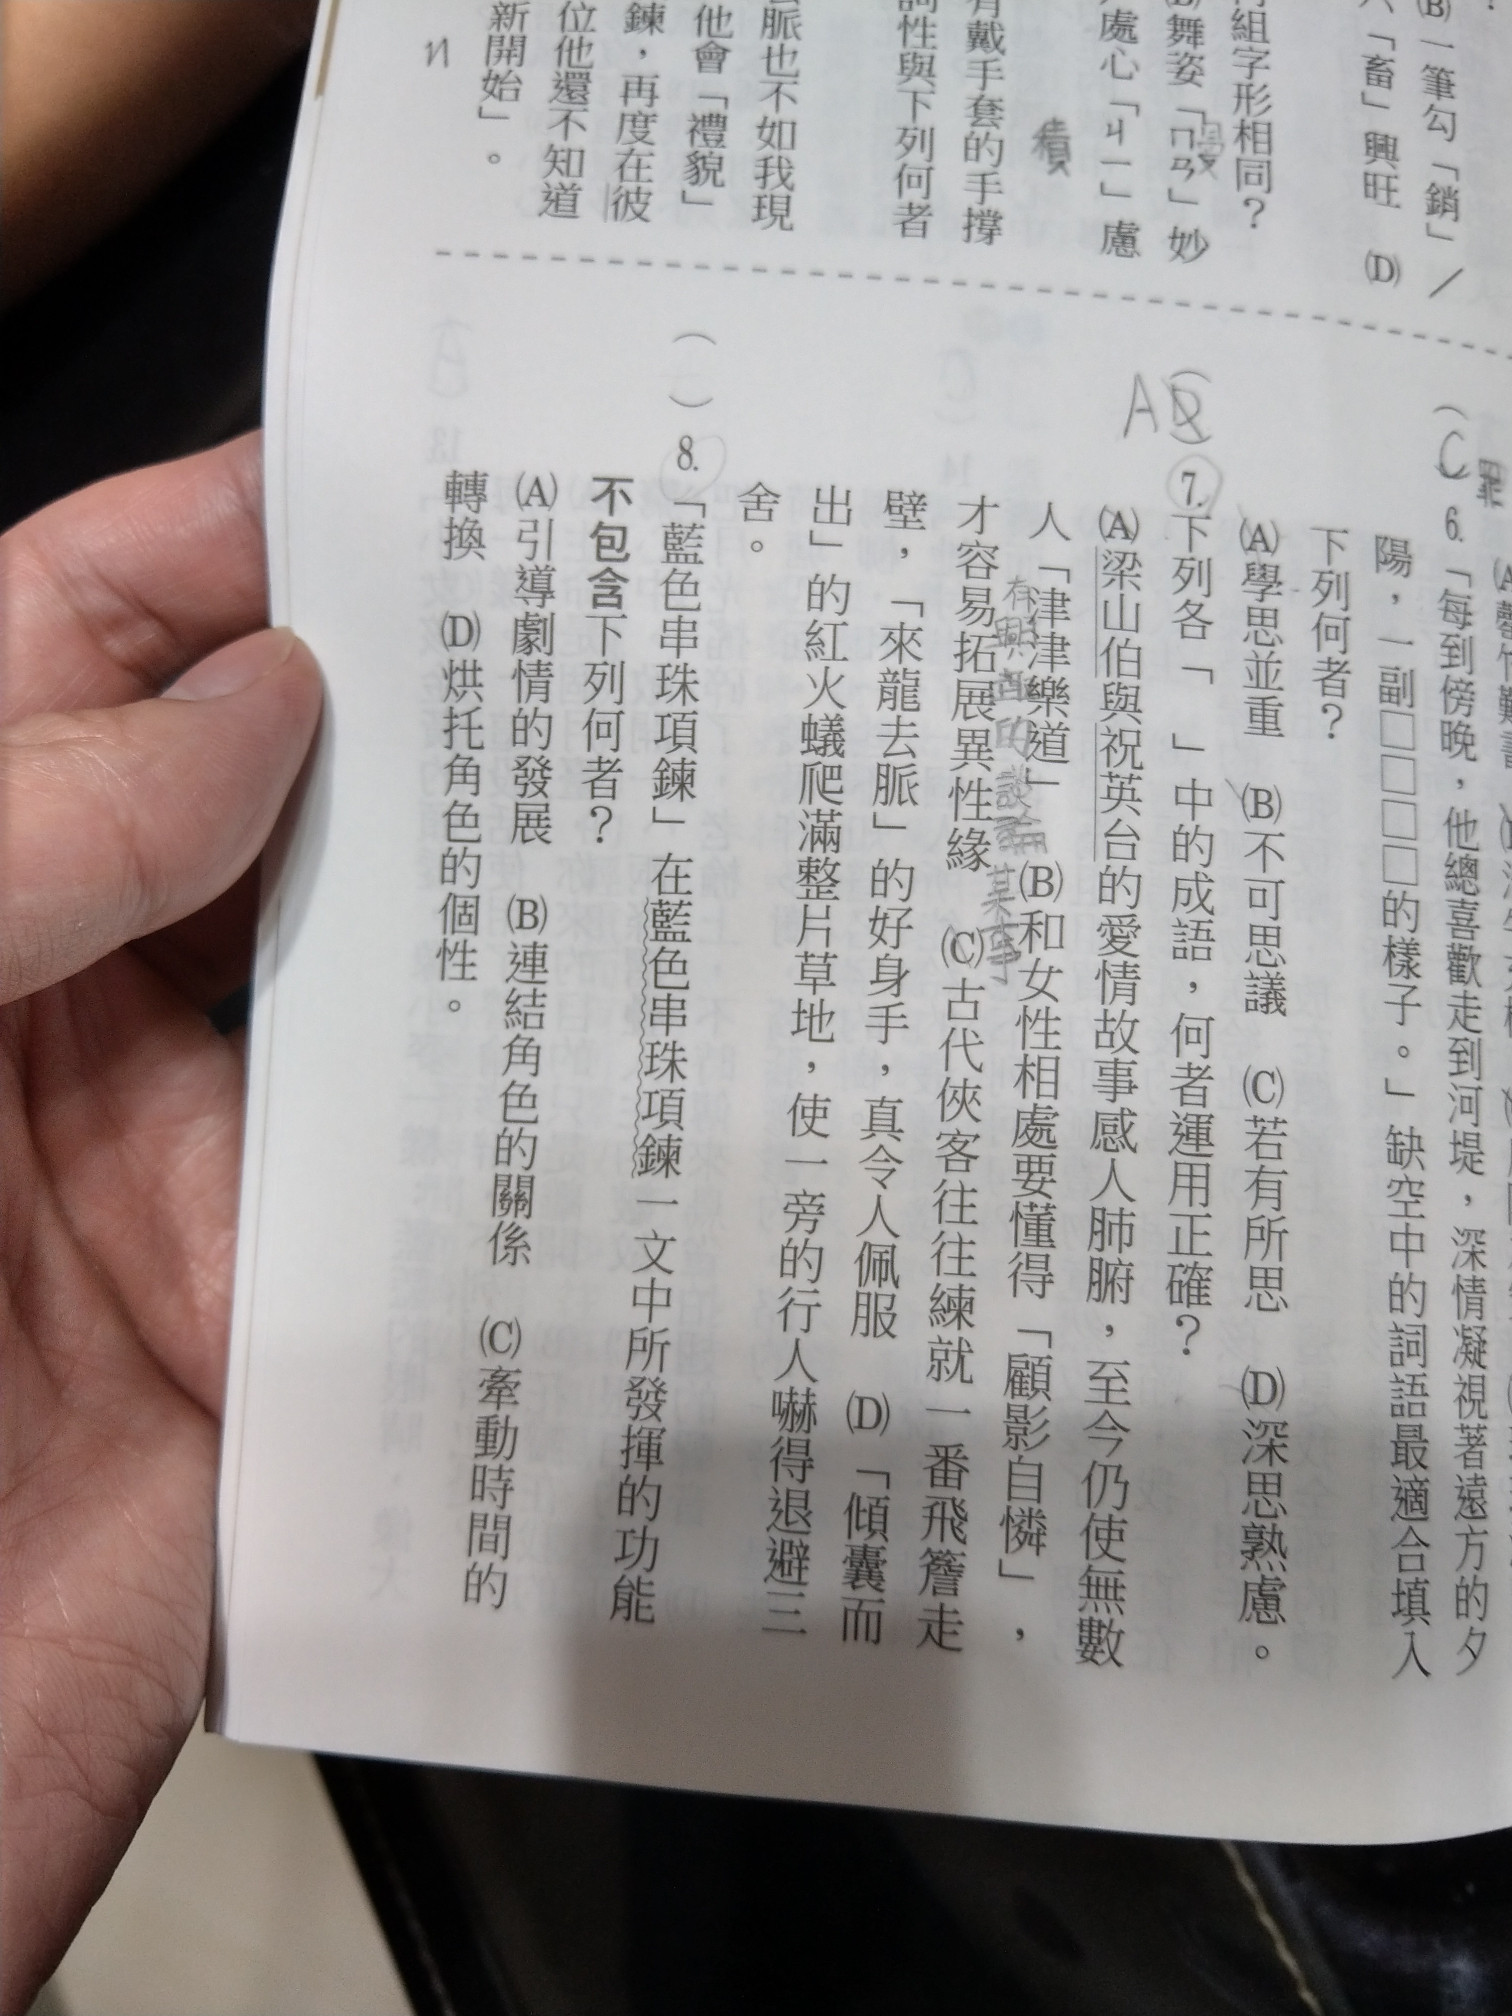 (B)一筆勾「銷」／
「畜」興旺　(D)
組字形相同？
舞姿「ㄇㄢˋ」妙
處心「ㄐㄧ」慮
積
有戴手套的手撐
詞性與下列何者
脈也不如我現
他會「禮貌」
鍊，再度在彼
位他還不知道
新開始」。
（C）6.「每到傍晚，他總喜歡走到河堤，深情凝視著遠方的夕
陽，一副□□□□的樣子。」缺空中的詞語最適合填入
下列何者？
(A)學思並重　(B)不可思議　(C)若有所思　(D)深思熟慮。
A
7.下列各「　」中的成語，何者運用正確？
(A)梁山伯與祝英台的愛情故事感人肺腑，至今仍使無數
人「津津樂道」　(B)和女性相處要懂得「顧影自憐」，
有興趣的談論某事
才容易拓展異性緣　(C)古代俠客往往練就一番飛簷走
壁，「來龍去脈」的好身手，真令人佩服　(D)「傾囊而
出」的紅火蟻爬滿整片草地，使一旁的行人嚇得退避三
舍。
（　）8.「藍色串珠項鍊」在藍色串珠項鍊一文中所發揮的功能
不包含下列何者？
(A)引導劇情的發展　(B)連結角色的關係　(C)牽動時間的
轉換　(D)烘托角色的個性。